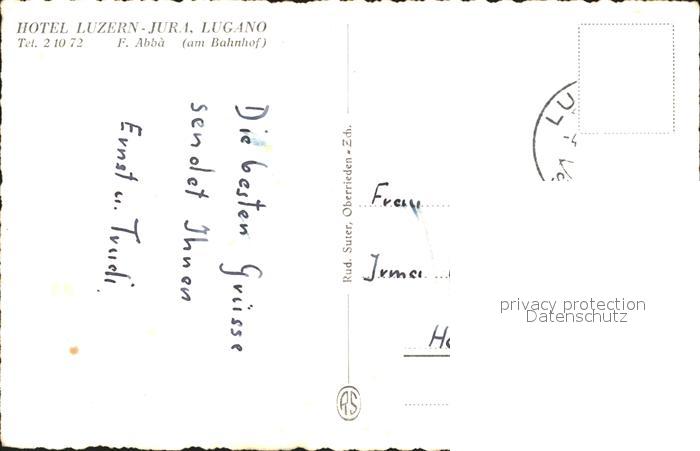 HOTEL LUZERN-JURA, LUGANO
Tel. 2 10 72 F. Abbà (am Bahnhof)
Die besten Grüsse
sendet Ihnen
Ernst u. Trudi.
Rud. Suter, Oberrieden-Zch.
RS
LU
Frau
Irma
privacy protection
Datenschutz